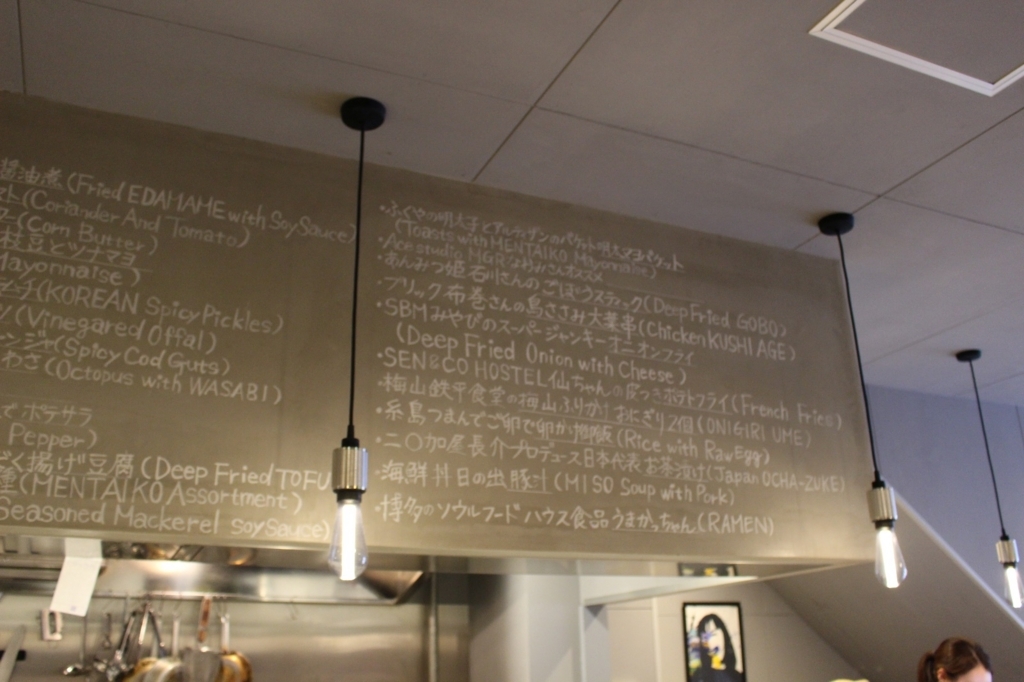 醤油煮(Fried EDAMAME with Soy Sauce)
(Coriander And Tomato)
(Corn Butter)
枝豆とツナマヨ
Mayonnaise)
(KOREAN Spicy Pickles)
(Vinegared Offal)
(Spicy Cod Guts)
わさ(Octopus with WASABI)
でポテサラ
Pepper)
揚げ豆腐(Deep Fried TOFU
(MENTAIKO Assortment)
Seasoned Mackerel soy Sauce)
・ふくやの明太子とアルティザンのバゲットの明太マヨバゲット
(Toasts with MENTAIKO Mayonnaise)
・Ace studio MGR
・あんみつ姫石川さんのごぼうスティック(Deep Fried GOBO)
・ブリック布巻さんの鳥ささみ大葉串(Chicken KUSHIAGE)
・SBMみやびのスーパージャンキーオニオンフライ
(Deep Fried Onion with Cheese)
・SEN&CO HOSTEL仙ちゃんの皮つきポテトフライ(French Fries)
・梅山鉄平食堂の梅山ふりかけおにぎり2個(ONIGIRI UME)
・糸島つまんでご卵で卵かけ御飯(Rice with Raw Egg)
・二〇加屋長介プロデュース日本代表お茶漬け(Japan OCHA-ZUKE)
・海鮮丼日の出豚汁(MISO Soup with Pork)
・博多のソウルフードハウス食品うまかっちゃん(RAMEN)